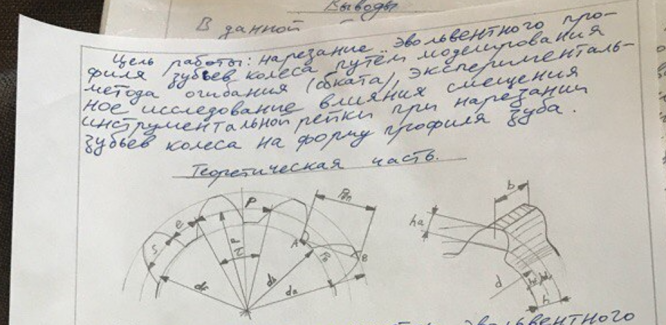 Выводы
В данной
Цель работы: нарезание эвольвентного про-
филя зубьев колеса путём моделирования
метода огибания (обката), эксперименталь-
ное исследование влияния смещения
инструментальной рейки при нарезании
зубьев колеса на форму профиля зуба.
Теоретическая часть.
S e P A B
df da
b ha d h
эвольвентного